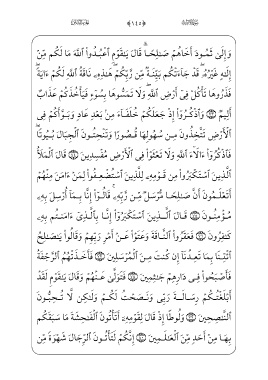 وَإِلَىٰ ثَمُودَ أَخَاهُمْ صَـٰلِحًا ۚ قَالَ يَـٰقَوْمِ ٱعْبُدُوا۟ ٱللَّهَ مَا لَكُم مِّنْ
إِلَـٰهٍ غَيْرُهُۥ ۖ قَدْ جَآءَتْكُم بَيِّنَةٌ مِّن رَّبِّكُمْ ۖ هَـٰذِهِۦ نَاقَةُ ٱللَّهِ لَكُمْ ءَايَةً ۖ
فَذَرُوهَا تَأْكُلْ فِىٓ أَرْضِ ٱللَّهِ ۖ وَلَا تَمَسُّوهَا بِسُوٓءٍ فَيَأْخُذَكُمْ عَذَابٌ
أَلِيمٌ وَٱذْكُرُوٓا۟ إِذْ جَعَلَكُمْ خُلَفَآءَ مِنۢ بَعْدِ عَادٍ وَبَوَّأَكُمْ فِى
ٱلْأَرْضِ تَتَّخِذُونَ مِن سُهُولِهَا قُصُورًا وَتَنْحِتُونَ ٱلْجِبَالَ بُيُوتًا ۖ
فَٱذْكُرُوٓا۟ ءَالَآءَ ٱللَّهِ وَلَا تَعْثَوْا۟ فِى ٱلْأَرْضِ مُفْسِدِينَ قَالَ ٱلْمَلَأُ
ٱلَّذِينَ ٱسْتَكْبَرُوا۟ مِن قَوْمِهِۦ لِلَّذِينَ ٱسْتُضْعِفُوا۟ لِمَنْ ءَامَنَ مِنْهُمْ
أَتَعْلَمُونَ أَنَّ صَـٰلِحًا مُّرْسَلٌ مِّن رَّبِّهِۦ ۚ قَالُوٓا۟ إِنَّا بِمَآ أُرْسِلَ بِهِۦ
مُؤْمِنُونَ قَالَ ٱلَّذِينَ ٱسْتَكْبَرُوٓا۟ إِنَّا بِٱلَّذِىٓ ءَامَنتُم بِهِۦ
كَـٰفِرُونَ فَعَقَرُوا۟ ٱلنَّاقَةَ وَعَتَوْا۟ عَنْ أَمْرِ رَبِّهِمْ وَقَالُوا۟ يَـٰصَـٰلِحُ
ٱئْتِنَا بِمَا تَعِدُنَآ إِن كُنتَ مِنَ ٱلْمُرْسَلِينَ فَأَخَذَتْهُمُ ٱلرَّجْفَةُ
فَأَصْبَحُوا۟ فِى دَارِهِمْ جَـٰثِمِينَ فَتَوَلَّىٰ عَنْهُمْ وَقَالَ يَـٰقَوْمِ لَقَدْ
أَبْلَغْتُكُمْ رِسَالَةَ رَبِّى وَنَصَحْتُ لَكُمْ وَلَـٰكِن لَّا تُحِبُّونَ
ٱلنَّـٰصِحِينَ وَلُوطًا إِذْ قَالَ لِقَوْمِهِۦٓ أَتَأْتُونَ ٱلْفَـٰحِشَةَ مَا سَبَقَكُم
بِهَا مِنْ أَحَدٍ مِّنَ ٱلْعَـٰلَمِينَ إِنَّكُمْ لَتَأْتُونَ ٱلرِّجَالَ شَهْوَةً مِّن